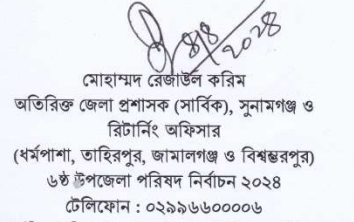 ৪/৪/২০২৪
মোহাম্মদ রেজাউল করিম
অতিরিক্ত জেলা প্রশাসক (সার্বিক), সুনামগঞ্জ ও
রিটার্নিং অফিসার
(ধর্মপাশা, তাহিরপুর, জামালগঞ্জ ও বিশ্বম্ভরপুর)
৬ষ্ঠ উপজেলা পরিষদ নির্বাচন ২০২৪
টেলিফোন : ০২৯৯৬৬০০০০৬